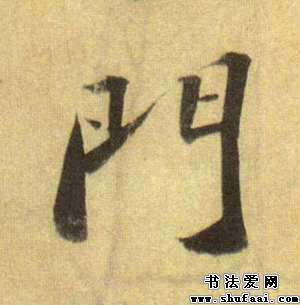 門
书法爱网
www.shufaai.com